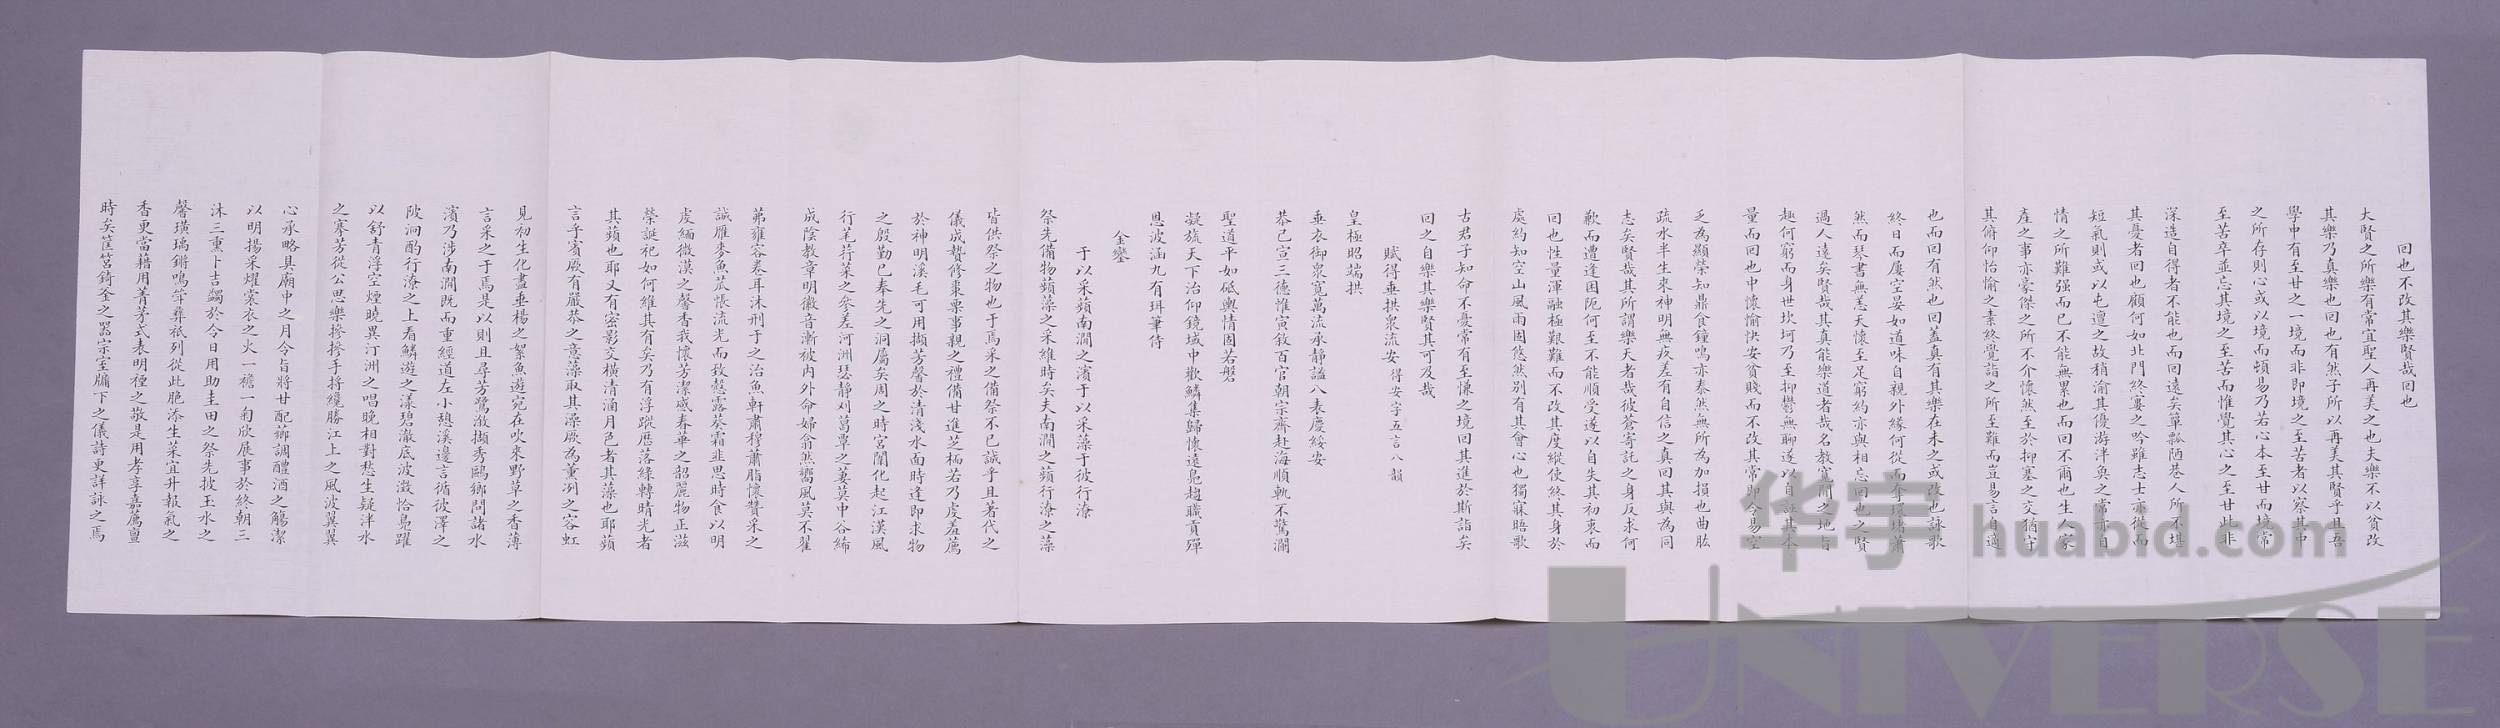 回也不改其樂賢哉回也
大賢之所樂有常宜聖人再美之也夫樂不以貧改
其樂乃真樂也回也有然子所以再美其賢乎且吾
學中有至甘之一境而非即境之至苦者以察其中
之所存則心或以境而頓易乃若心本至甘而境常
至苦卒並忘其境之至苦而惟覺其心之至甘此非
深造自得者不能也而回遠矣簞瓢陋巷人所不堪
其憂者回也顧何如北門終窶之吟雖志士亦從而
短氣則或以屯邅之故稍渝其優游泮奐之常亦自
情之所難强而已不能無累也而回不爾也生人家
產之事亦豪傑之所不介懷然至於抑塞之交猶守
其俯仰怡愉之素終覺詣之所至難而豈易言自適
也而回有然也回蓋真有其樂在未之或改也詠歌
終日而屢空晏如道味自親外緣何從而奪環堵蕭
然而琴書無恙天懷至足窮約亦與相忘回也之賢
過人遠矣賢哉其真能樂道者哉名教寬閒之地皆
趣何窮而身世坎坷乃至抑鬱無聊遂以自誣其本
量而回也中懷愉快安貧賤而不改其常即令屢空
乏為顯榮知鼎食鐘鳴亦泰然無所為加損也曲肱
疏水半生來神明無疚差有自信之真回其與為同
志矣賢哉其所謂樂天者哉彼蒼寄託之身反求何
歉而遭逢困阨何至不能順受遂以自失其初衷而
回也性量渾融極艱難而不改其度縱使終其身於
處約知空山風雨固悠然別有其會心也獨寐晤歌
古君子知命不憂常有至慊之境回其進於斯詣矣
回之自樂其樂賢其可及哉
賦得垂拱衆流安 得安字五言八韻
皇極昭端拱
垂衣御衆寬萬流承靜謐八表慶綏安
恭己宣三德惟寅敘百官朝宗齊赴海順軌不驚瀾
聖道平如砥輿情固若磐
凝旒天下治仰鏡域中歡鱗集歸懷遠鳧趨職貢殫
恩波涵九有珥筆侍
金鑾
于以采蘋南澗之濱于以采藻于彼行潦
祭先備物蘋藻之采維時矣夫南澗之蘋行潦之藻
皆供祭之物也于焉采之備祭不已誠乎且著代之
儀成贄修棗栗事親之禮備甘進芝栭若乃虔羞薦
於神明溪毛可用擷芳馨於清淺水面時逢即求物
之殷勤已奉先之洞屬矣周之時宮闈化起江漢風
行芼荇菜之參差河洲瑟靜刈葛覃之萋莫中谷絺
成陰教章明徽音漸被內外命婦翕然嚮風莫不翟
茀雍容卷耳沐刑于之治魚軒肅穆蕭脂懷贊采之
誠雁麥魚苽悵流光而致慤露葵霜韭思時食以明
虔緬微漠之馨香我懷芳潔感春華之韶麗物正滋
榮誕祀如何維其有矣乃有浮蹤歷落綠轉晴光者
其蘋也耶又有密影交橫清涵月色者其藻也耶蘋
言乎賓厥有嚴恭之意藻取其澡厥為薰洌之容虹
見初生化盡垂楊之絮魚遊宛在吹來野草之香薄
言采之于焉是以則且尋芳鷺溆擷秀鷗鄉問諸水
濱乃涉南澗既而重經道左小憩溪邊言循彼澤之
陂泂酌行潦之上看鱗遊之漾碧瀲底波澂恰鳧躍
以舒青浮空煙曉異汀洲之唱晚相對愁生疑泮水
之寒芳從公思樂摻摻手捋纔勝江上之風波翼翼
心承略具廟中之月令旨將甘配薌調醴酒之觴潔
以明揚采燿裳衣之火一襜一匊欣展事於終朝三
沐三熏卜吉蠲於今日用助圭田之祭先披玉水之
馨璜瑀鏘鳴筓彝祇列從此脃添生菜宜升報氣之
香更當藉用菁茅式表明禋之敬是用孝享嘉薦亶
時矣筐筥錡釜之器宗室牖下之儀詩更詳詠之焉
华宇 huabid.com
UNIVERSE